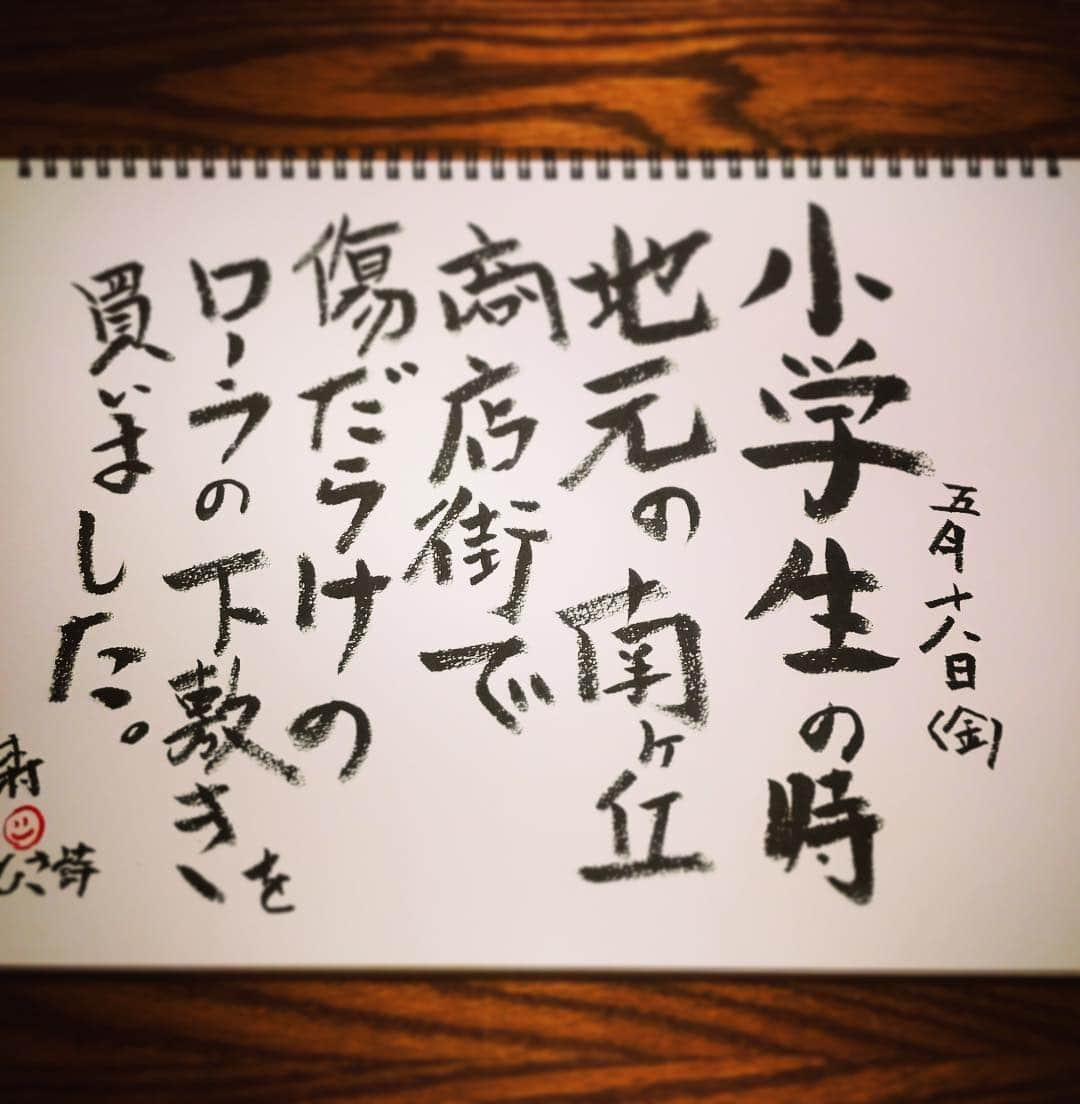 五月十八日(金)
小学生の時
地元の南ヶ丘
商店街で
傷だらけの
ローラの下敷きを
買いました。
寿